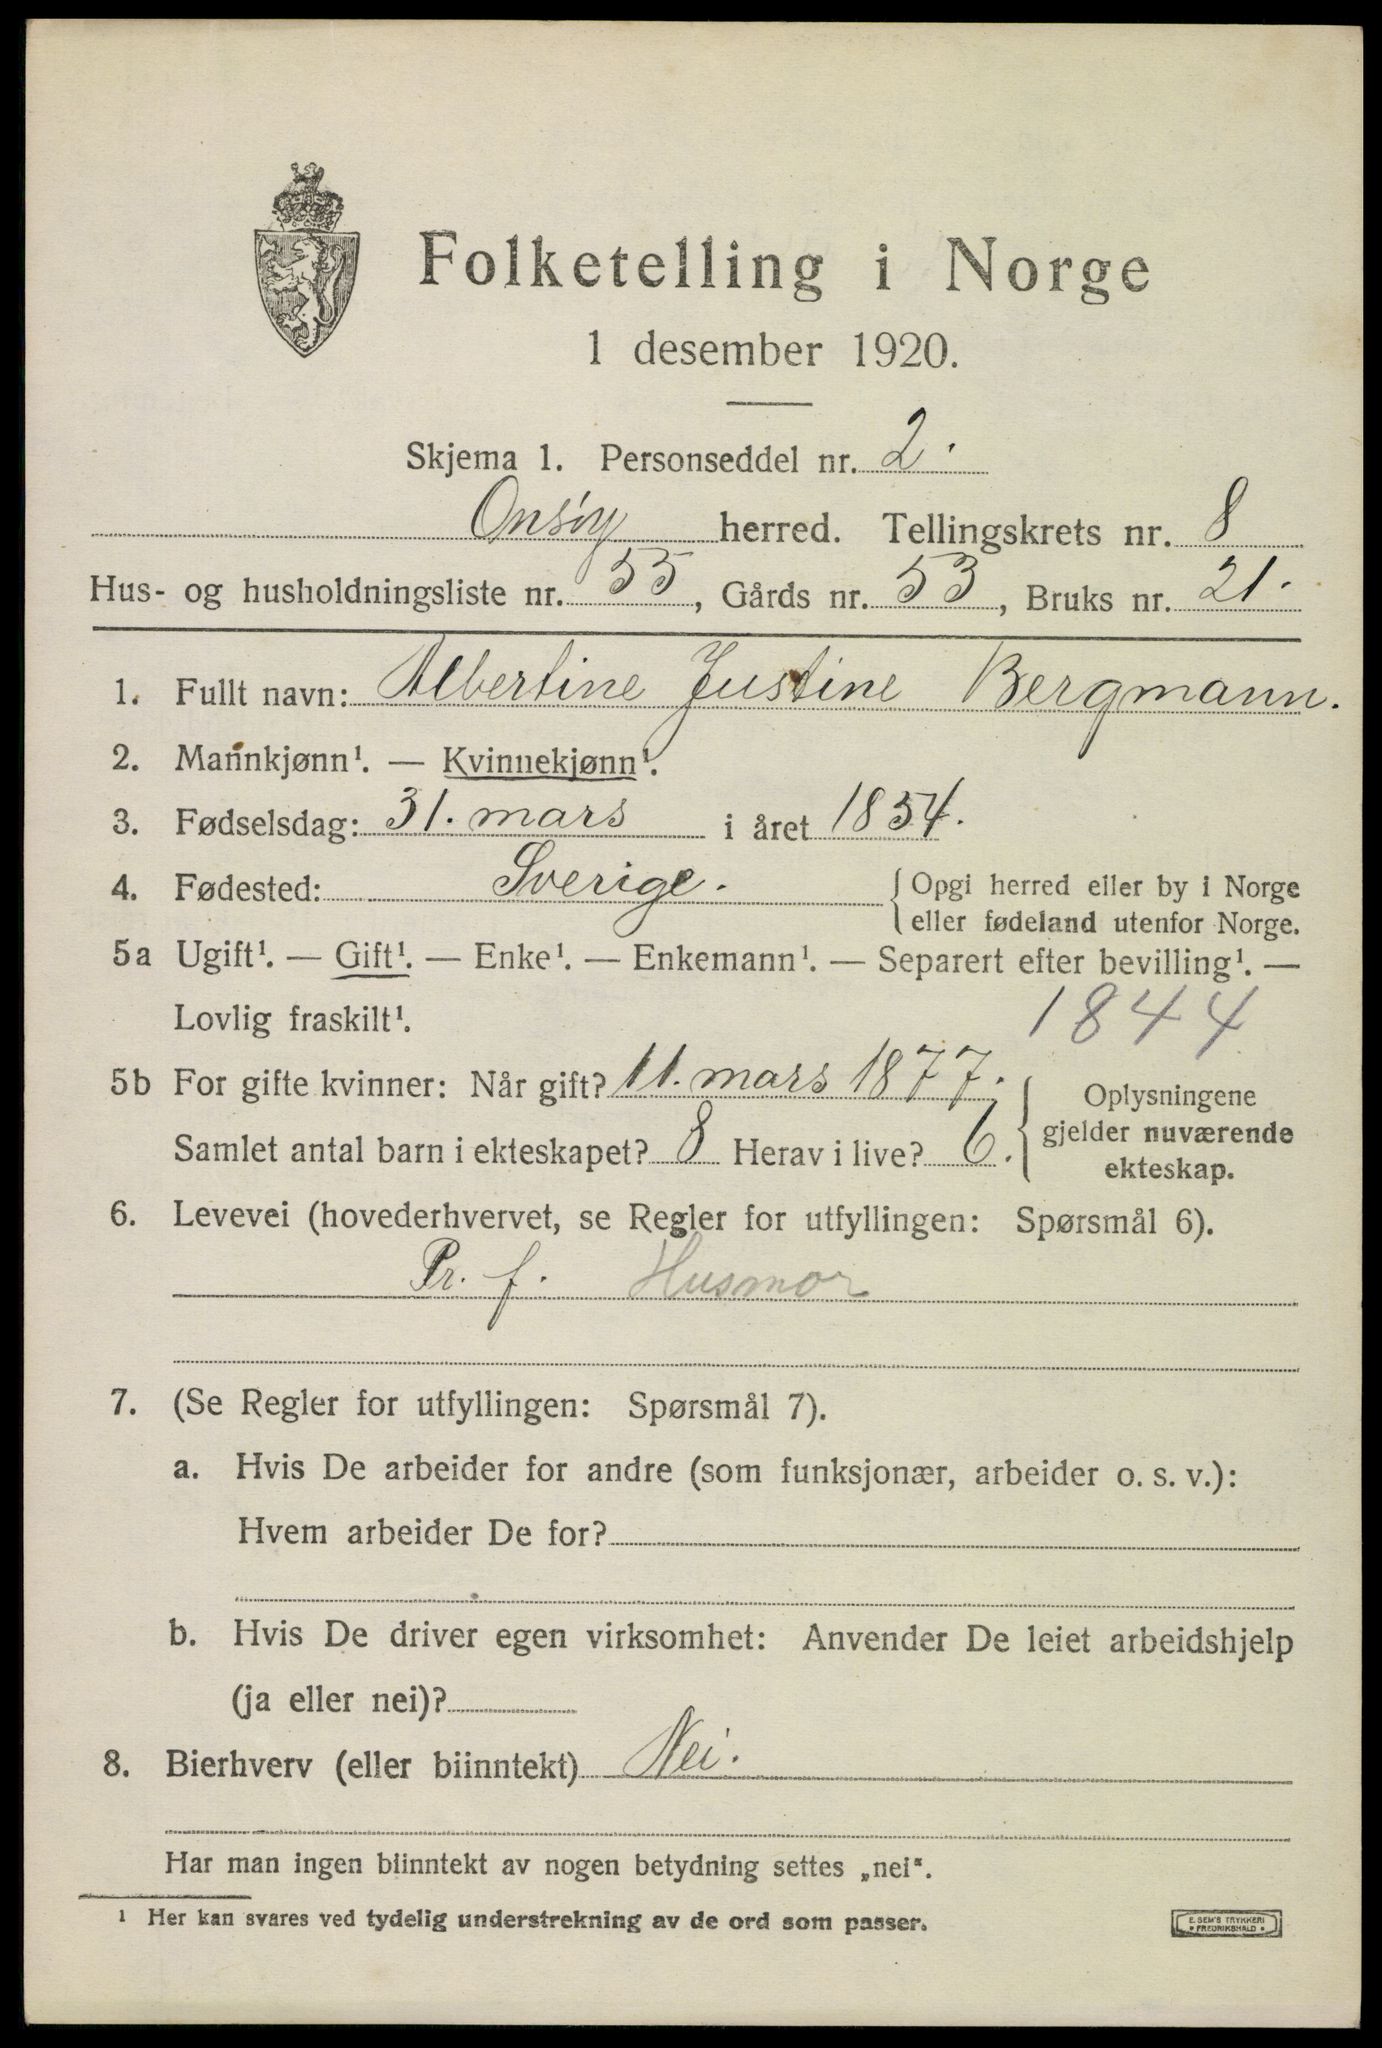 Folketelling i Norge
1 desember 1920.
Skjema 1. Personseddel nr. 2.
Onsöy herred. Tellingskrets nr. 8
Hus- og husholdningsliste nr. 55, Gårds nr. 53, Bruks nr. 21.
1. Fullt navn: Albertine Justine Bergmann.
2. Mannkjønn¹. — Kvinnekjønn¹.
3. Fødselsdag: 31. mars i året 1854.
4. Fødested: Sverige. { Opgi herred eller by i Norge
eller fødeland utenfor Norge.
5a Ugift¹. — Gift¹. — Enke¹. — Enkemann¹. — Separert efter bevilling¹. —
Lovlig fraskilt¹. 1844
5b For gifte kvinner: Når gift? 11. mars 1877. { Oplysningene
gjelder nuværende
ekteskap.
Samlet antal barn i ekteskapet? 8 Herav i live? 6.
6. Levevei (hovederhvervet, se Regler for utfyllingen: Spørsmål 6).
Pr. f. Husmor
7. (Se Regler for utfyllingen: Spørsmål 7).
a. Hvis De arbeider for andre (som funksjonær, arbeider o. s. v.):
Hvem arbeider De for?
b. Hvis De driver egen virksomhet: Anvender De leiet arbeidshjelp
(ja eller nei)?
8. Bierhverv (eller biinntekt) Nei.
Har man ingen biinntekt av nogen betydning settes „nei".
1 Her kan svares ved tydelig understrekning av de ord som passer.
E. SEM'S TRYKKERI
• FREDRIKSHALD •